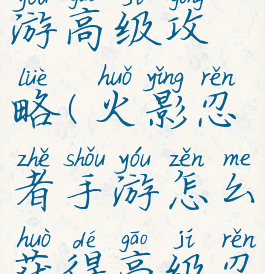 yóu gāo jí gōng
游高级攻
lüè huǒ yǐng rěn
略(火影忍
zhě shǒu yóu zěn me
者手游怎么
huò dé gāo jí rěn
获得高级忍